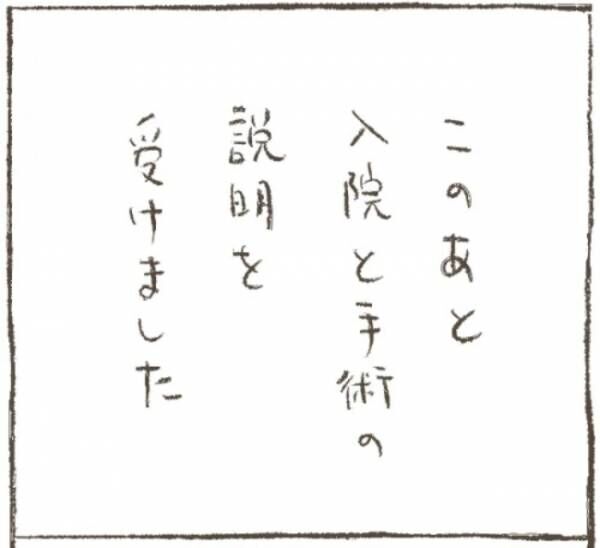 このあと
入院と手術の
説明を
受けました